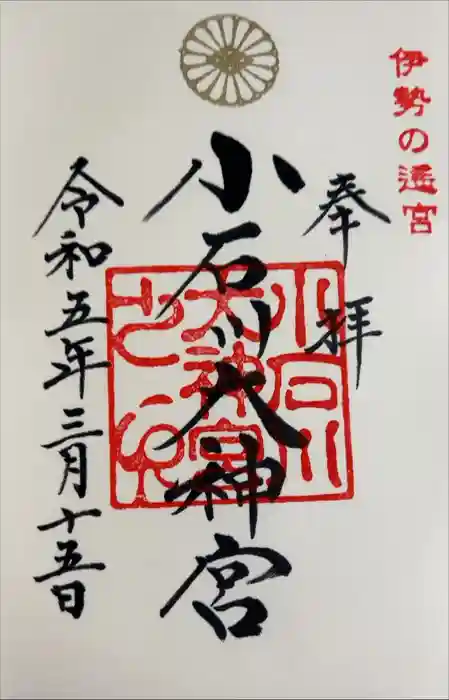 伊勢の遙宮
奉拝
小石川大神宮
小石川
大神宮
之印
令和五年三月十五日